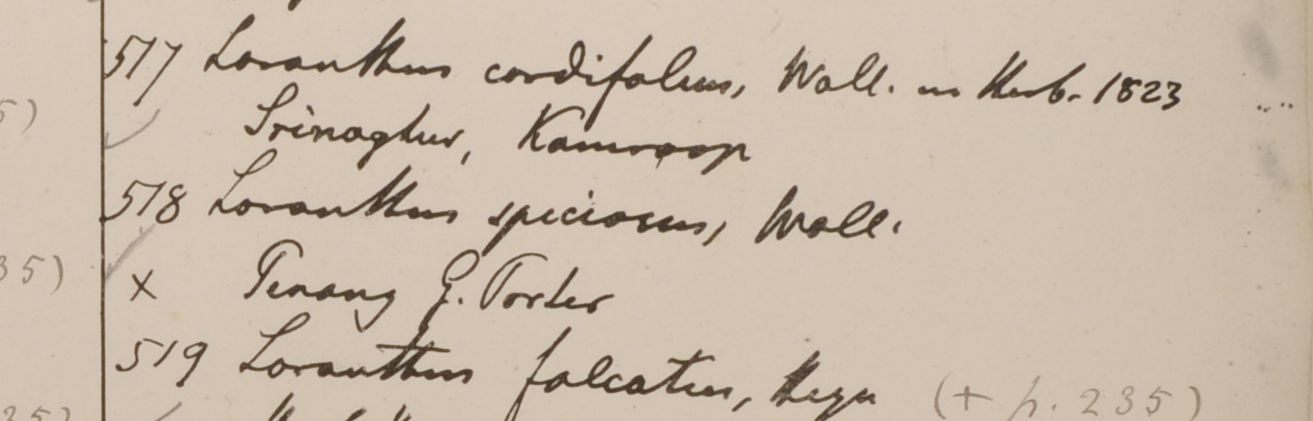 517 Loranthus cordifolius, Wall. in Herb. 1823
5)
Srinaghur, Kamroop
518 Loranthus speciosus, Wall.
35)
x Penang G. Porter
519 Loranthus falcatus, Heyn (+ p. 235)
35)